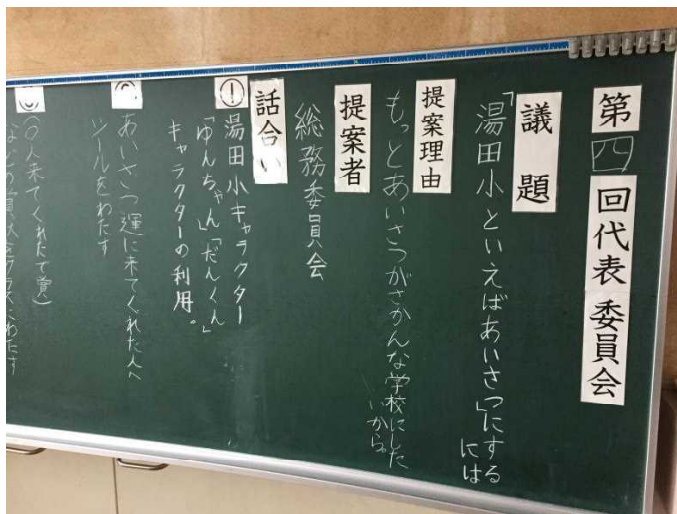 第四回代表委員会
議題
「湯田小といえばあいさつ」にする
には
提案理由
もっとあいさつがさかんな学校にした
いから。
提案者
総務委員会
話合い
① 湯田小キャラクター
「ゆんちゃん」「だんくん」
キャラクターの利用。
② あいさつ運に来てくれた人へ
シールをわたす
③ (〇人来てくれたで賞)
などの賞状をクラスにわたす